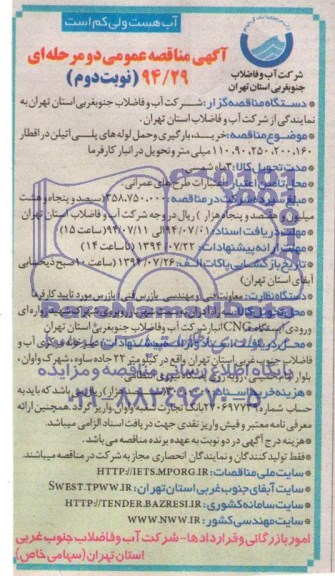 آب هست ولی کم است
آگهی مناقصه عمومی دو مرحله‌ای
۹۴/۲۹ (نوبت دوم)
شرکت آب و فاضلاب
جنوبغربی استان تهران
دستگاه مناقصه گزار: شرکت آب و فاضلاب جنوبغربی استان تهران به
نمایندگی از شرکت آب و فاضلاب استان تهران.
موضوع مناقصه: خرید، بارگیری و حمل لوله های پلی اتیلن در اقطار
۱۱۰،۹۰،۲۵۰،۲۰۰،۱۶۰ میلی متر و تحویل در انبار کارفرما
مدت تحویل کالا: ۳ ماه شمسی
محل تامین اعتبار: اعتبارات طرح های عمرانی
مبلغ سپرده شرکت در مناقصه: ۳۵۸،۷۵۰،۰۰۰ (سیصد و پنجاه و هشت
میلیون و هفتصد و پنجاه هزار) ریال در وجه شرکت آب و فاضلاب استان تهران
مهلت دریافت اسناد: ۹۴/۰۷/۰۱ الی ۹۴/۰۷/۱۱ (ساعت ۱۵)
مهلت ارائه پیشنهادات: ۱۳۹۴/۰۷/۲۲ (تا ساعت ۱۴)
تاریخ بازگشایی پاکات الف: ۱۳۹۴/۰۷/۲۶ (ساعت ۱۰ صبح ذیحسابی
آبفای استان تهران)
دستگاه نظارت: معاونت فنی و مهندسی بازرس فنی / بازرس مورد تایید کارفرما
ورودی ایستگاه CNG انبار شرکت آب و فاضلاب جنوبغربی استان تهران
فاضلاب جنوب غربی استان تهران واقع در کیلومتر ۲۲ جاده ساوه، شهرک واوان،
پایگاه اطلاع رسانی مناقصه و مزایده
۰۲۱-۸۸۳۴۹۶۷۰-۵
هزینه خرید اسناد
حساب شماره ۲۷۰۶۹۷۷۵ بانک تجارت شعبه واوان واریز گردد. همچنین ارائه
معرفی نامه معتبر و فیش واریز نقدی جهت دریافت اسناد الزامی میباشد.
هزینه درج آگهی در دو نوبت به عهده برنده مناقصه می باشد.
فقط تولید کنندگان و نمایندگان انحصاری مجاز به شرکت در مناقصه میباشند.
سایت ملی مناقصات: HTTP://IETS.MPORG.IR
سایت آبفای جنوب غربی استان تهران: SWEST.TPWW.IR
سایت سامانه کشوری: HTTP://TENDER.BAZRESI.IR
سایت مهندسی کشور: WWW.NWW.IR
امور بازرگانی و قراردادها - شرکت آب و فاضلاب جنوب غربی
استان تهران (سهامی خاص)